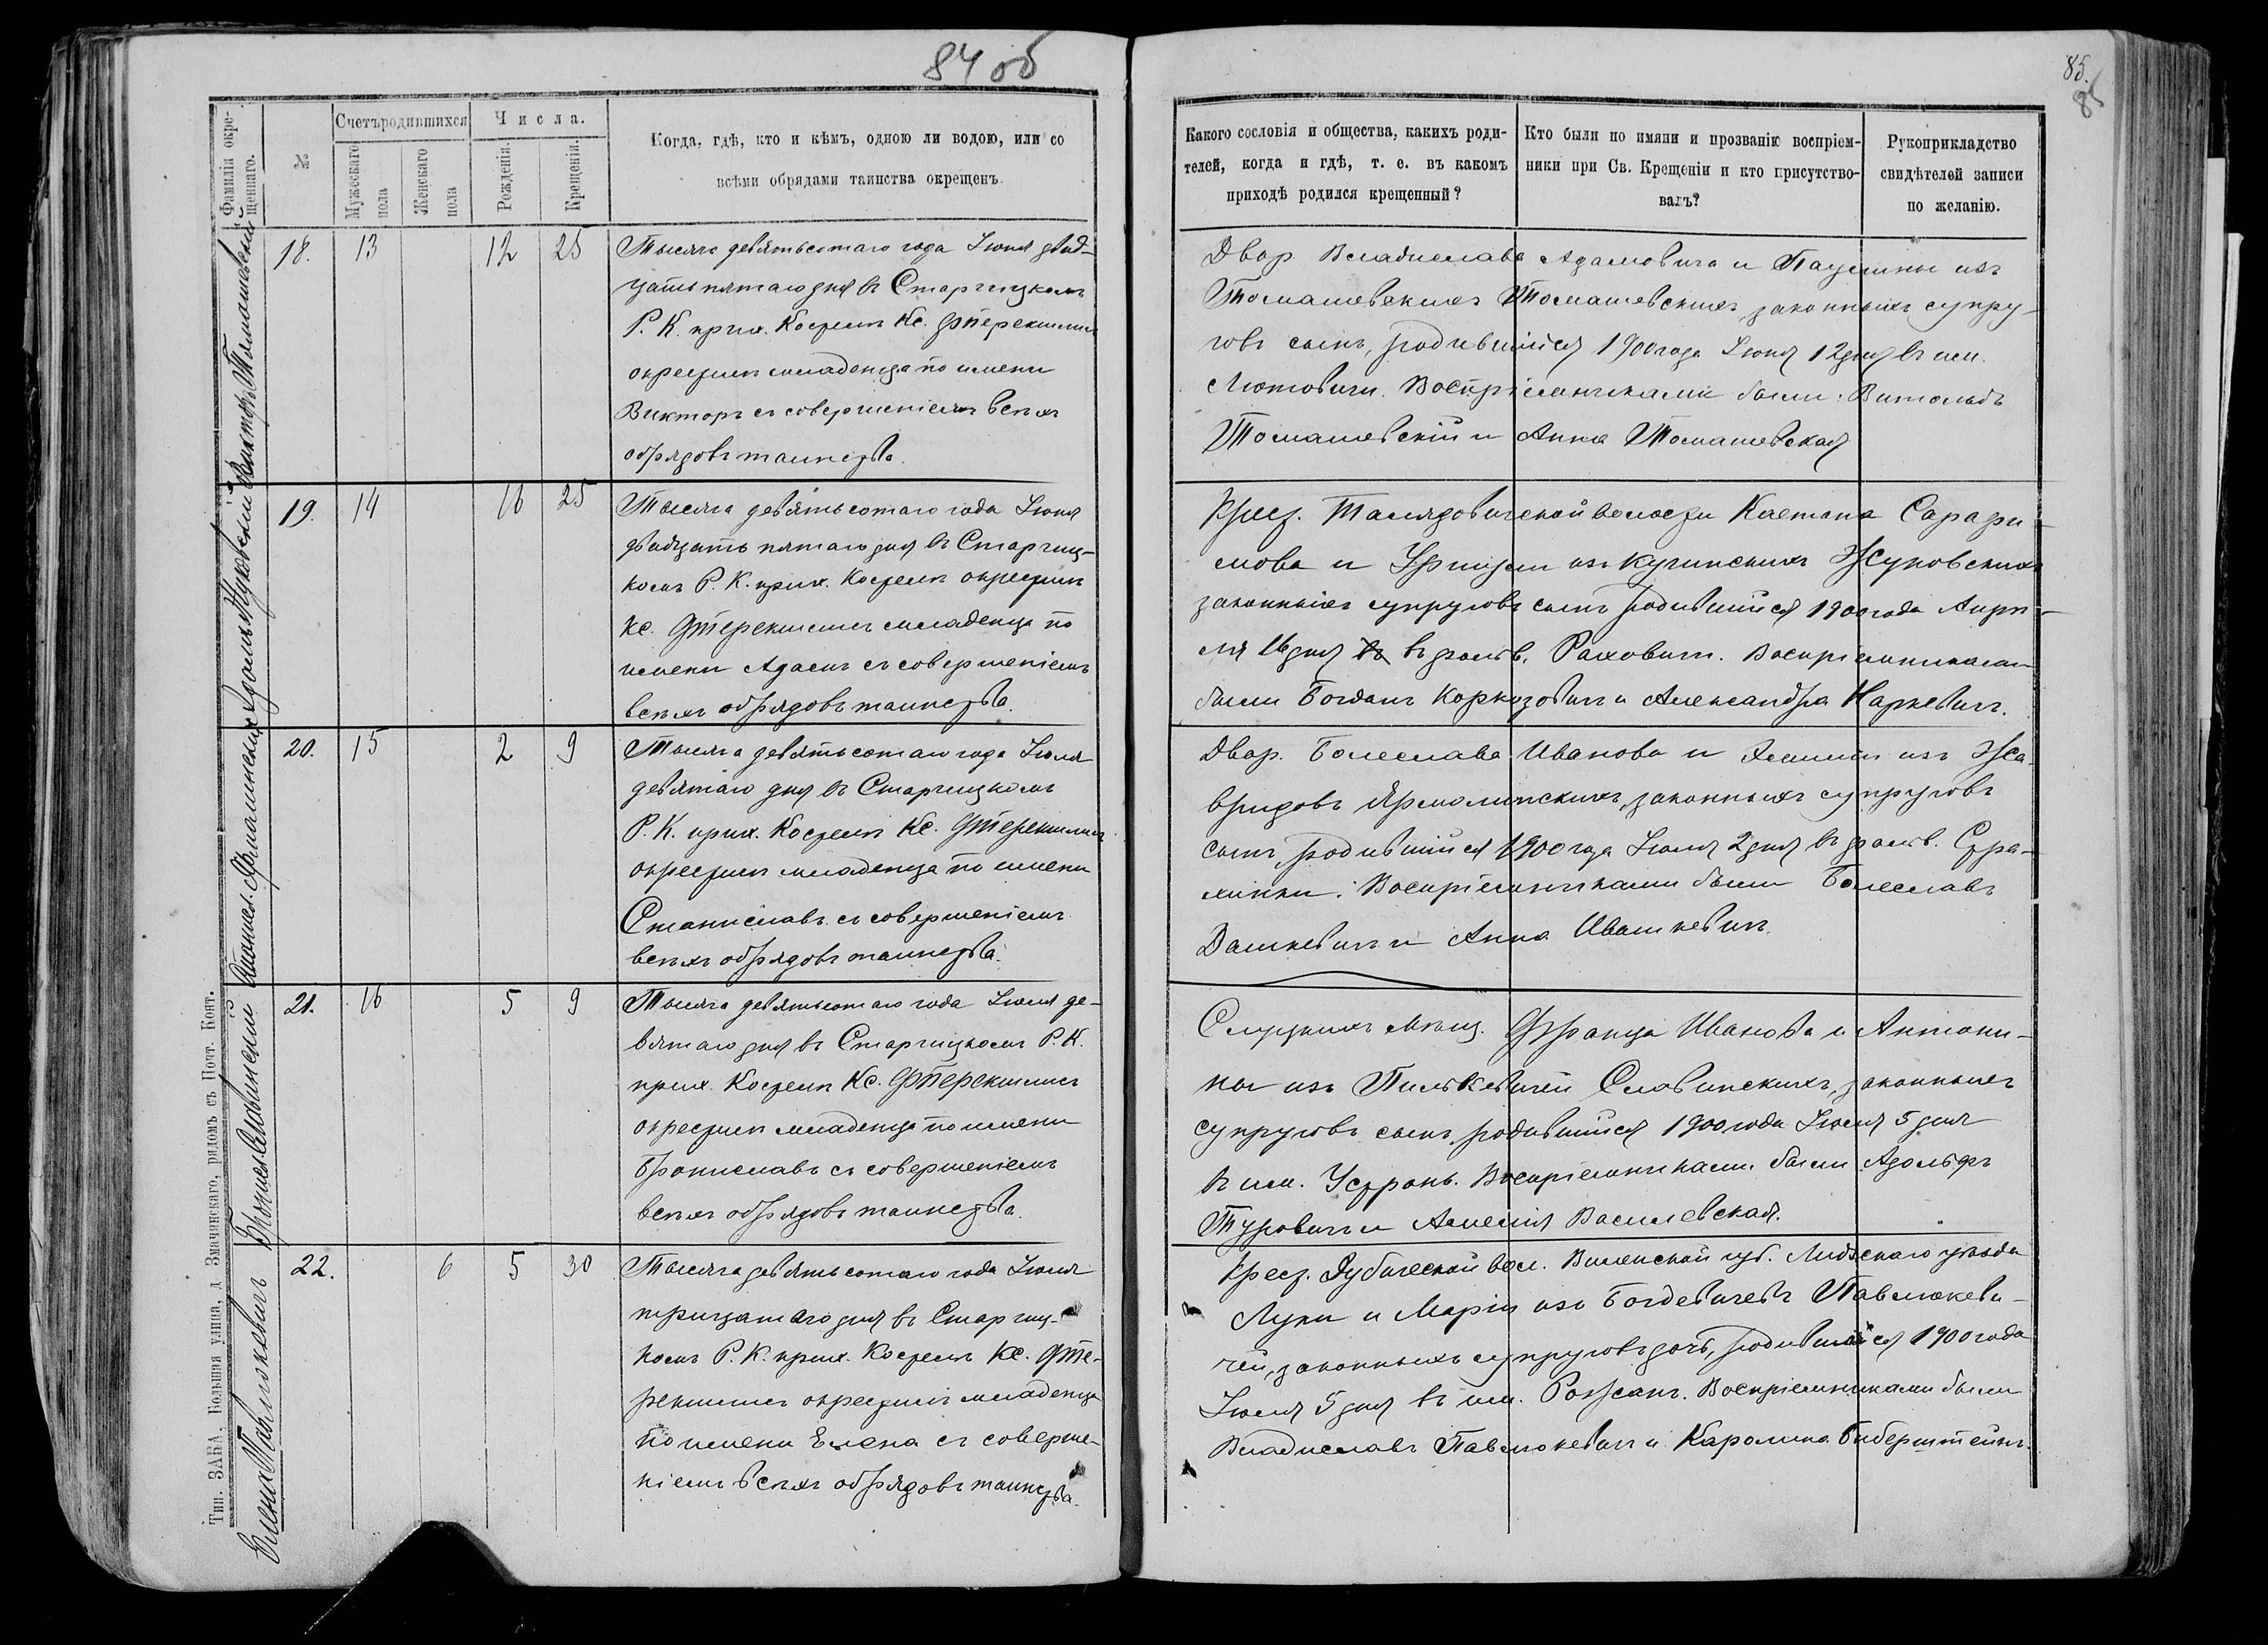 84 об
85.
85
Фамилія окре-
щеннаго.
№
Счетъ родившихся
Мужескаго
пола
Женскаго
пола
Числа.
Рожденія.
Крещенія.
Когда, гдѣ, кто и кѣмъ, одною ли водою, или со
всѣми обрядами таинства окрещенъ.
Какого сословія и общества, какихъ роди-
телей, когда и гдѣ, т. е. въ какомъ
приходѣ родился крещенный?
Кто были по имяни и прозванію воспріем-
ники при Св. Крещеніи и кто присутство-
валъ?
Рукоприкладство
свидѣтелей записи
по желанію.
Викторъ Томашевскій
18.
13
12
25
Тысяча девятьсотаго года Іюня двад-
цать пятаго дня въ Старчицкомъ
Р. К. прих. Костелѣ Кс.
окрестилъ младенца по имени
Викторъ съ совершеніемъ всѣхъ
обрядовъ таинства.
Двор. Владислава Адамовича и Паулины изъ
Томашевскихъ Томашевскихъ, законныхъ супру-
говъ сынъ, родившійся 1900 года Іюня 12 дня въ им.
Лютовичи. Воспріемниками были: Витольдъ
Томашевскій и Анна Томашевская
Адамъ Жуковскій
19.
14
16
25
Тысяча девятьсотаго года Іюня
двадцать пятаго дня въ Старчиц-
комъ Р. К. прих. Костелѣ окрестилъ
Кс. младенца по
имени Адамъ съ совершеніемъ
всѣхъ обрядовъ таинства.
Крест. волости Каетана
мова и изъ Кучинскихъ Жуковскихъ
законныхъ супруговъ сынъ родившійся 1900 года Апрѣ-
ля 16 дня въ фольв. Раховичи. Воспріемниками
были Богданъ и Александра Наркевичъ.
Станисл. Ярмолинскій
20.
15
2
9
Тысяча девятьсотаго года Іюля
девятаго дня въ Старчицкомъ
Р. К. прих. Костелѣ Кс.
окрестилъ младенца по имени
Станиславъ съ совершеніемъ
всѣхъ обрядовъ таинства.
Двор. Болеслава Иванова и Эмиліи изъ Жа-
вридовъ Ярмолинскихъ, законныхъ супруговъ
сынъ, родившійся 1900 года Іюля 2 дня въ фольв. Стра-
хинки. Воспріемниками были Болеславъ
Дашкевичъ и Анна Ивашкевичъ.
Бронисл. Славинскій
21.
16
5
9
Тысяча девятьсотаго года Іюля де-
вятаго дня въ Старчицкомъ Р. К.
прих. Костелѣ Кс.
окрестилъ младенца по имени
Брониславъ съ совершеніемъ
всѣхъ обрядовъ таинства.
Слуцкихъ мѣщ. Франца Иванова и Антони-
ны изъ Славинскихъ, законныхъ
супруговъ сынъ, родившійся 1900 года Іюля 5 дня
въ им. Устронь. Воспріемниками были Адольфъ
Туровичъ и Амелія Василевская.
Елена Павлюкевичъ
22.
6
5
30
Тысяча девятьсотаго года Іюля
тридцатаго дня въ Старчиц-
комъ Р. К. прих. Костелѣ Кс.
окрестилъ младенца
по имени Елена съ соверше-
ніемъ всѣхъ обрядовъ таинства.
Крест. Дубичской вол. Виленской губ. Лидскаго уѣзда
Луки и Маріи изъ Богдевичевъ Павлюкеви-
чей, законныхъ супруговъ дочь, родившаяся 1900 года
Іюля 5 дня въ им. Воспріемниками были
Владиславъ Павлюкевичъ и Каролина Биберштейнъ.
Тип. ЗАКА, Большая улица, д. Змачинскаго, рядомъ съ Почт. Конт.